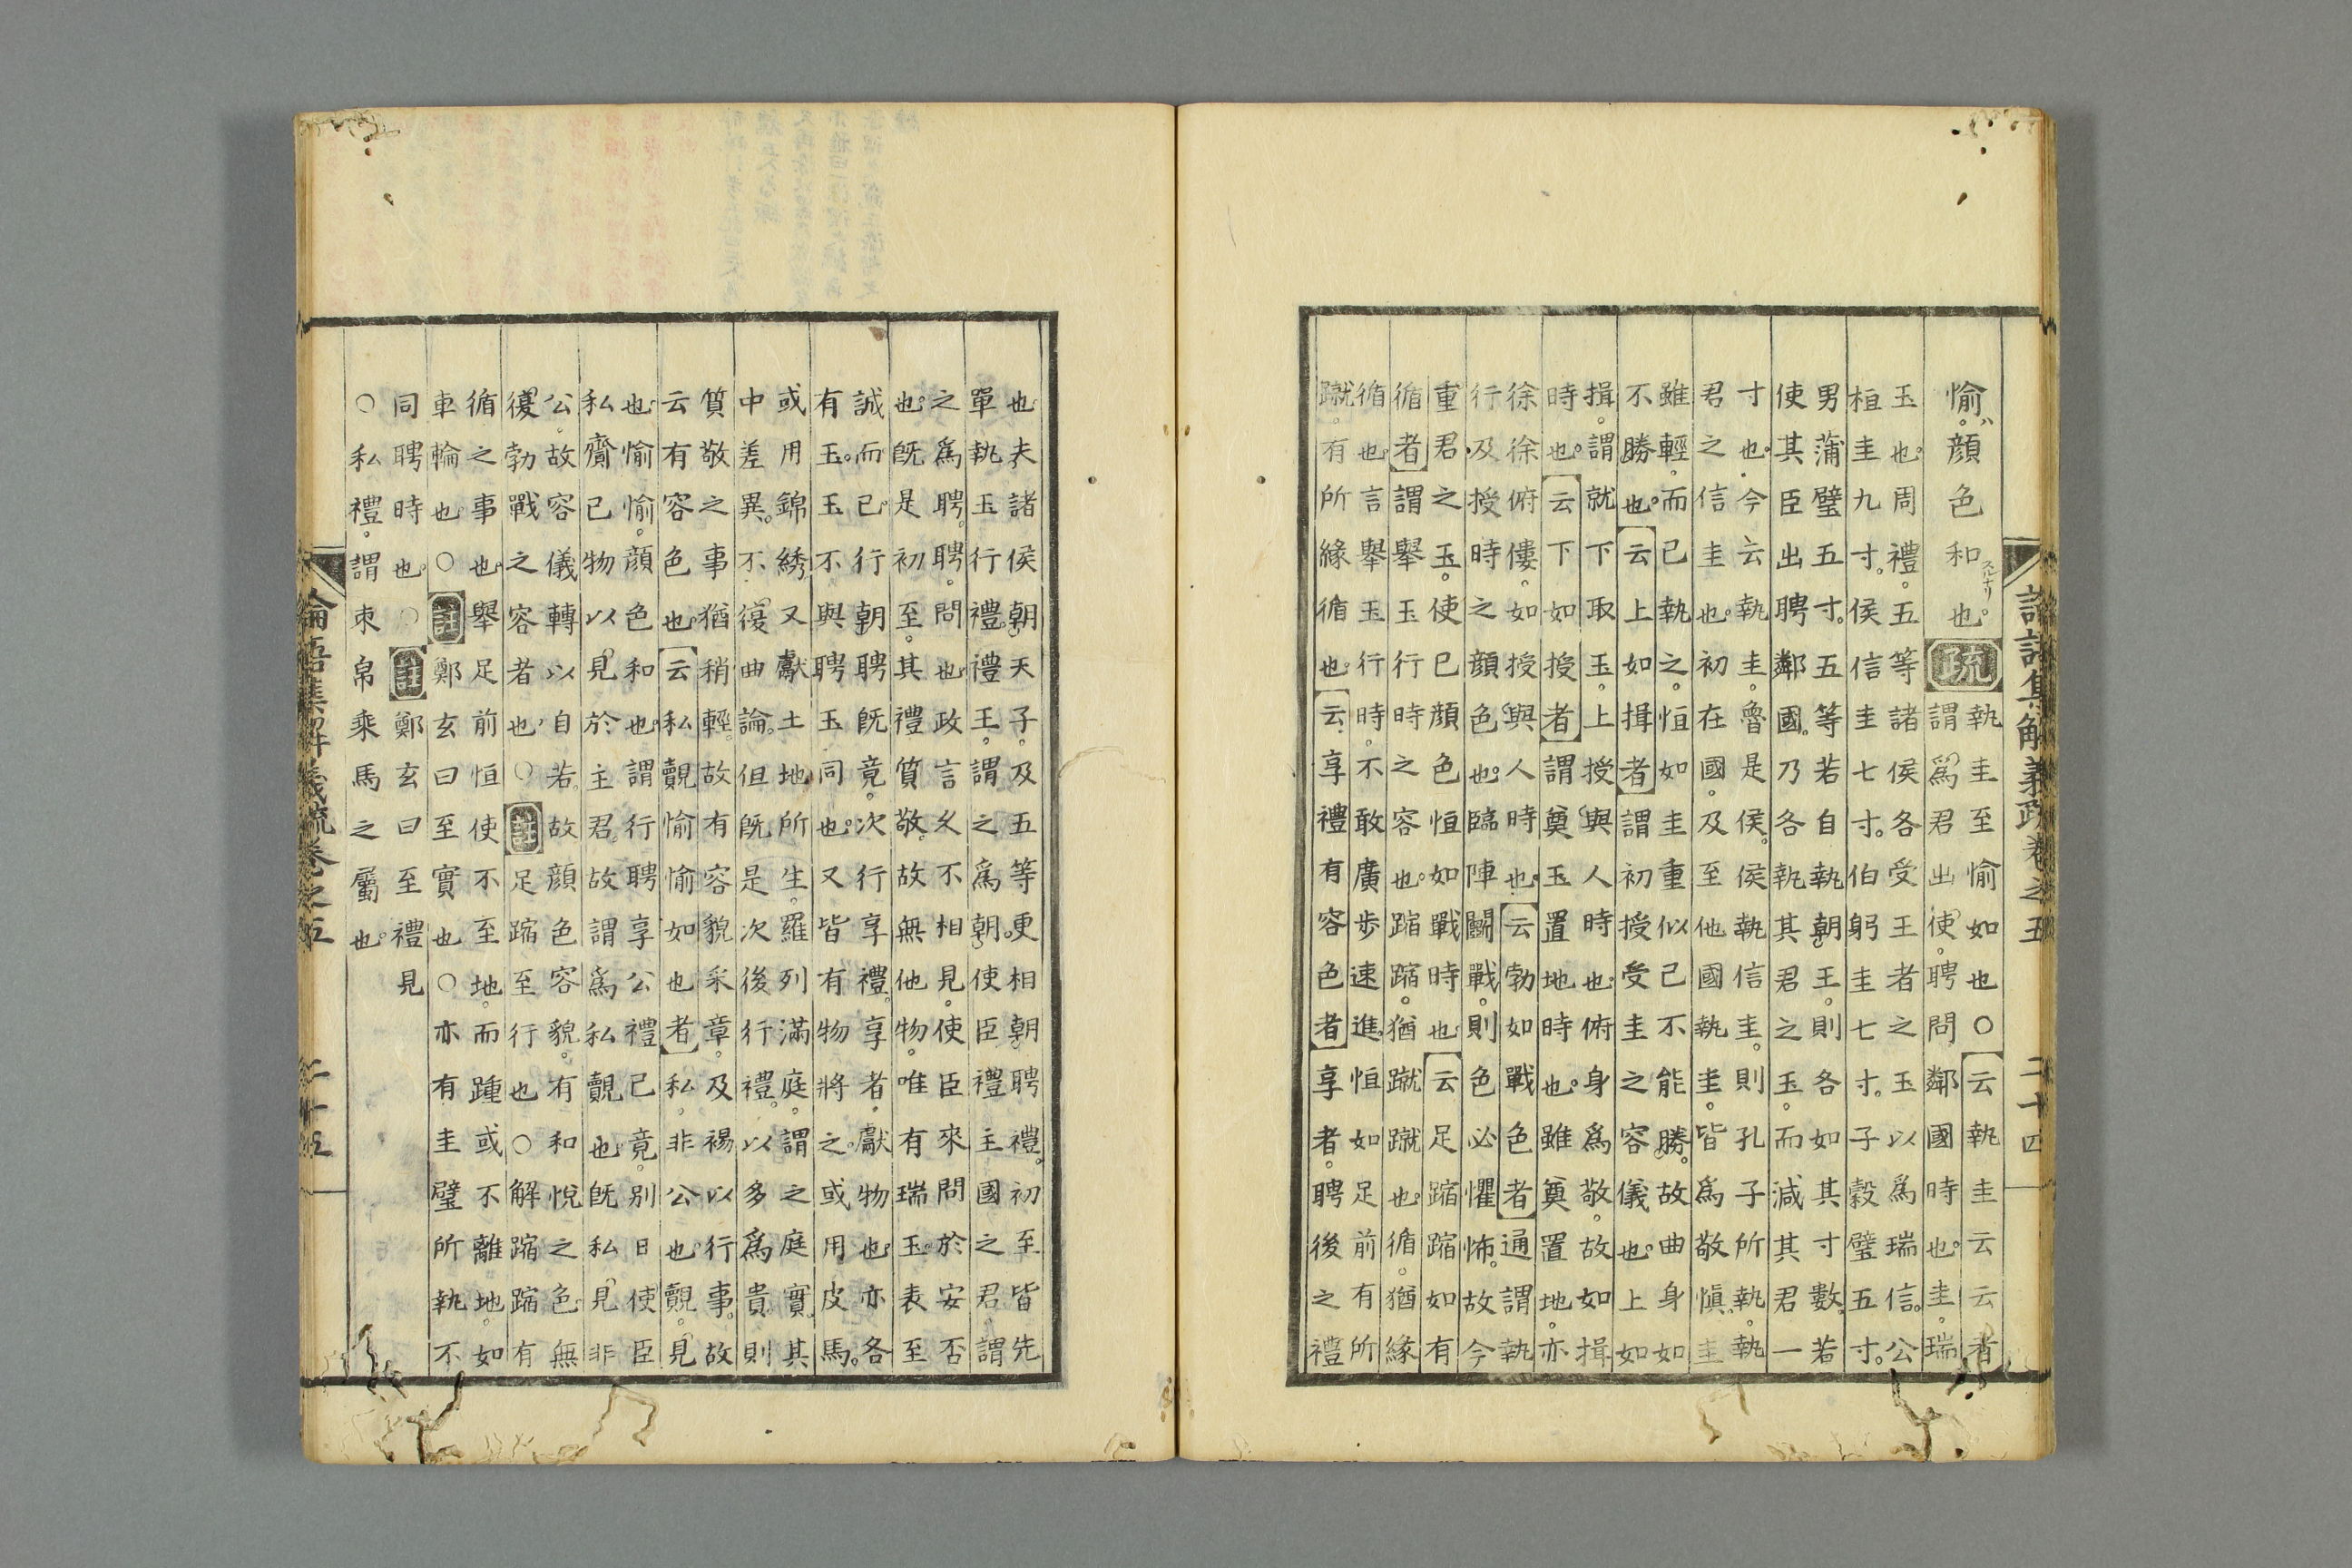 論語集解義疏卷之五 二十四
愉顏色和也疏
執圭至愉如也○云執圭云云者
謂爲君出使聘問鄰國時也圭瑞
玉也周禮五等諸侯各受王者之玉以爲瑞信公
桓圭九寸侯信圭七寸伯躬圭七寸子穀璧五寸
男蒲璧五寸五等若自執朝王則各如其寸數若
使其臣出聘鄰國乃各執其君之玉而減其君一
寸也今云執圭魯是侯侯執信圭則孔子所執執
君之信圭也初在國及至他國執圭皆爲敬愼圭
雖輕而己執之恒如圭重似己不能勝故曲身如
不勝也云上如揖者謂初授受圭之容儀也上如
揖謂就下取玉上授與人時也俯身爲敬故如揖
時也云下如授者謂奠玉置地時也雖奠置地亦
徐徐俯僂如授與人時也云勃如戰色者通謂執
行及授時之顏色也臨陣鬭戰則色必懼怖故今
重君之玉使己顏色恒如戰時也云足蹜蹜如有
循者謂舉玉行時之容也蹜蹜猶蹴蹴也循猶緣
循也言舉玉行時不敢廣步速進恒如足前有所
蹴有所緣循也云享禮有容色者享者聘後之禮
也夫諸侯朝天子及五等更相朝聘禮初至皆先
單執玉行禮禮王謂之爲朝使臣禮主國之君謂
之爲聘聘問也政言久不相見使臣來問於安否
也既是初至其禮質敬故無他物唯有瑞玉表至
誠而已行朝聘既竟次行享禮享者獻物也亦各
有玉玉不與聘玉同也又皆有物將之或用皮馬
或用錦綉又獻土地所生羅列滿庭謂之庭實其
中差異不復曲論但既是次後行禮以多爲貴則
質敬之事猶稍輕故有容貌采章及裼以行事故
云有容色也云私覿愉愉如也者私非公也覿見
也愉愉顏色和也謂行聘享公禮已竟別日使臣
私齎己物以見於主君故謂爲私覿也既私見非
公故容儀轉以自若故顏色容貌有和悅之色無
復勃戰之容者也○註足蹜至行也○解蹜蹜有
循之事也舉足前恒使不至地而踵或不離地如
車輪也○註鄭玄曰至實也○亦有圭璧所執不
同聘時也○註鄭玄曰至禮見
○私禮謂束帛乘馬之屬也
論語集解義疏卷之五 二十五